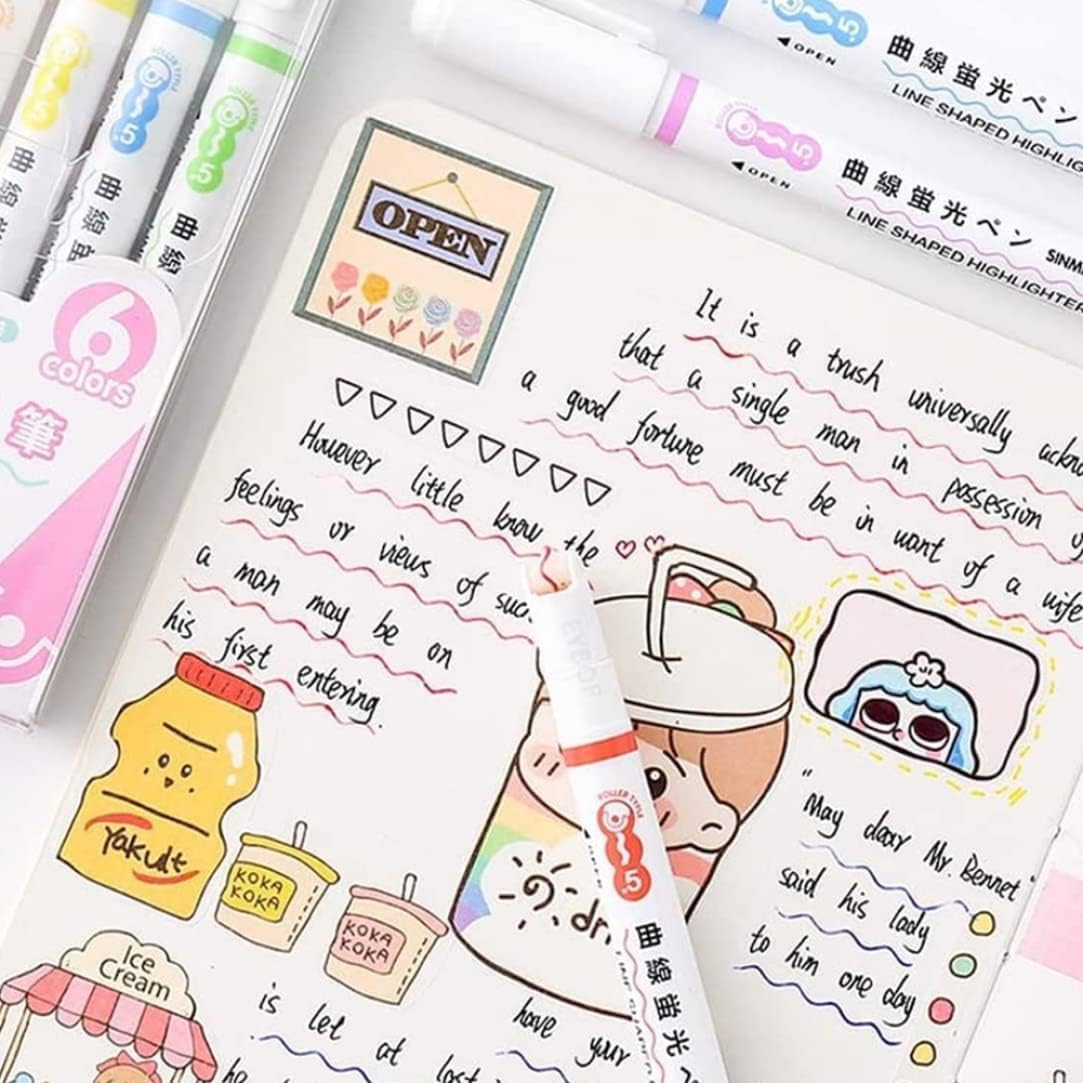 .5
OPEN
曲線蛍光ペン
LINE SHAPED HIGHLIG
ROLLER TYPE
.5
OPEN
曲線蛍光ペン
LINE SHAPED HIGHLIGHTER
SINM
.5
曲線
ROLLER TYPE
.5
曲線
ROLLER TYPE
.5
曲線
6
colors
筆
OPEN
It is a trush universally ackno
that a single man in possession
a good fortune must be in want of a wife
However little know the
feelings or views of suc
a man may be on
his first entering.
EVEBOP
ROLLER TYPE
.5
曲線蛍光ペ
Yakult
KOKA
KOKA
KOKA
KOKA
Ice
Cream
dr
"May dear Mr. Bennet"
said his lady
to him one day
is let at last
have your